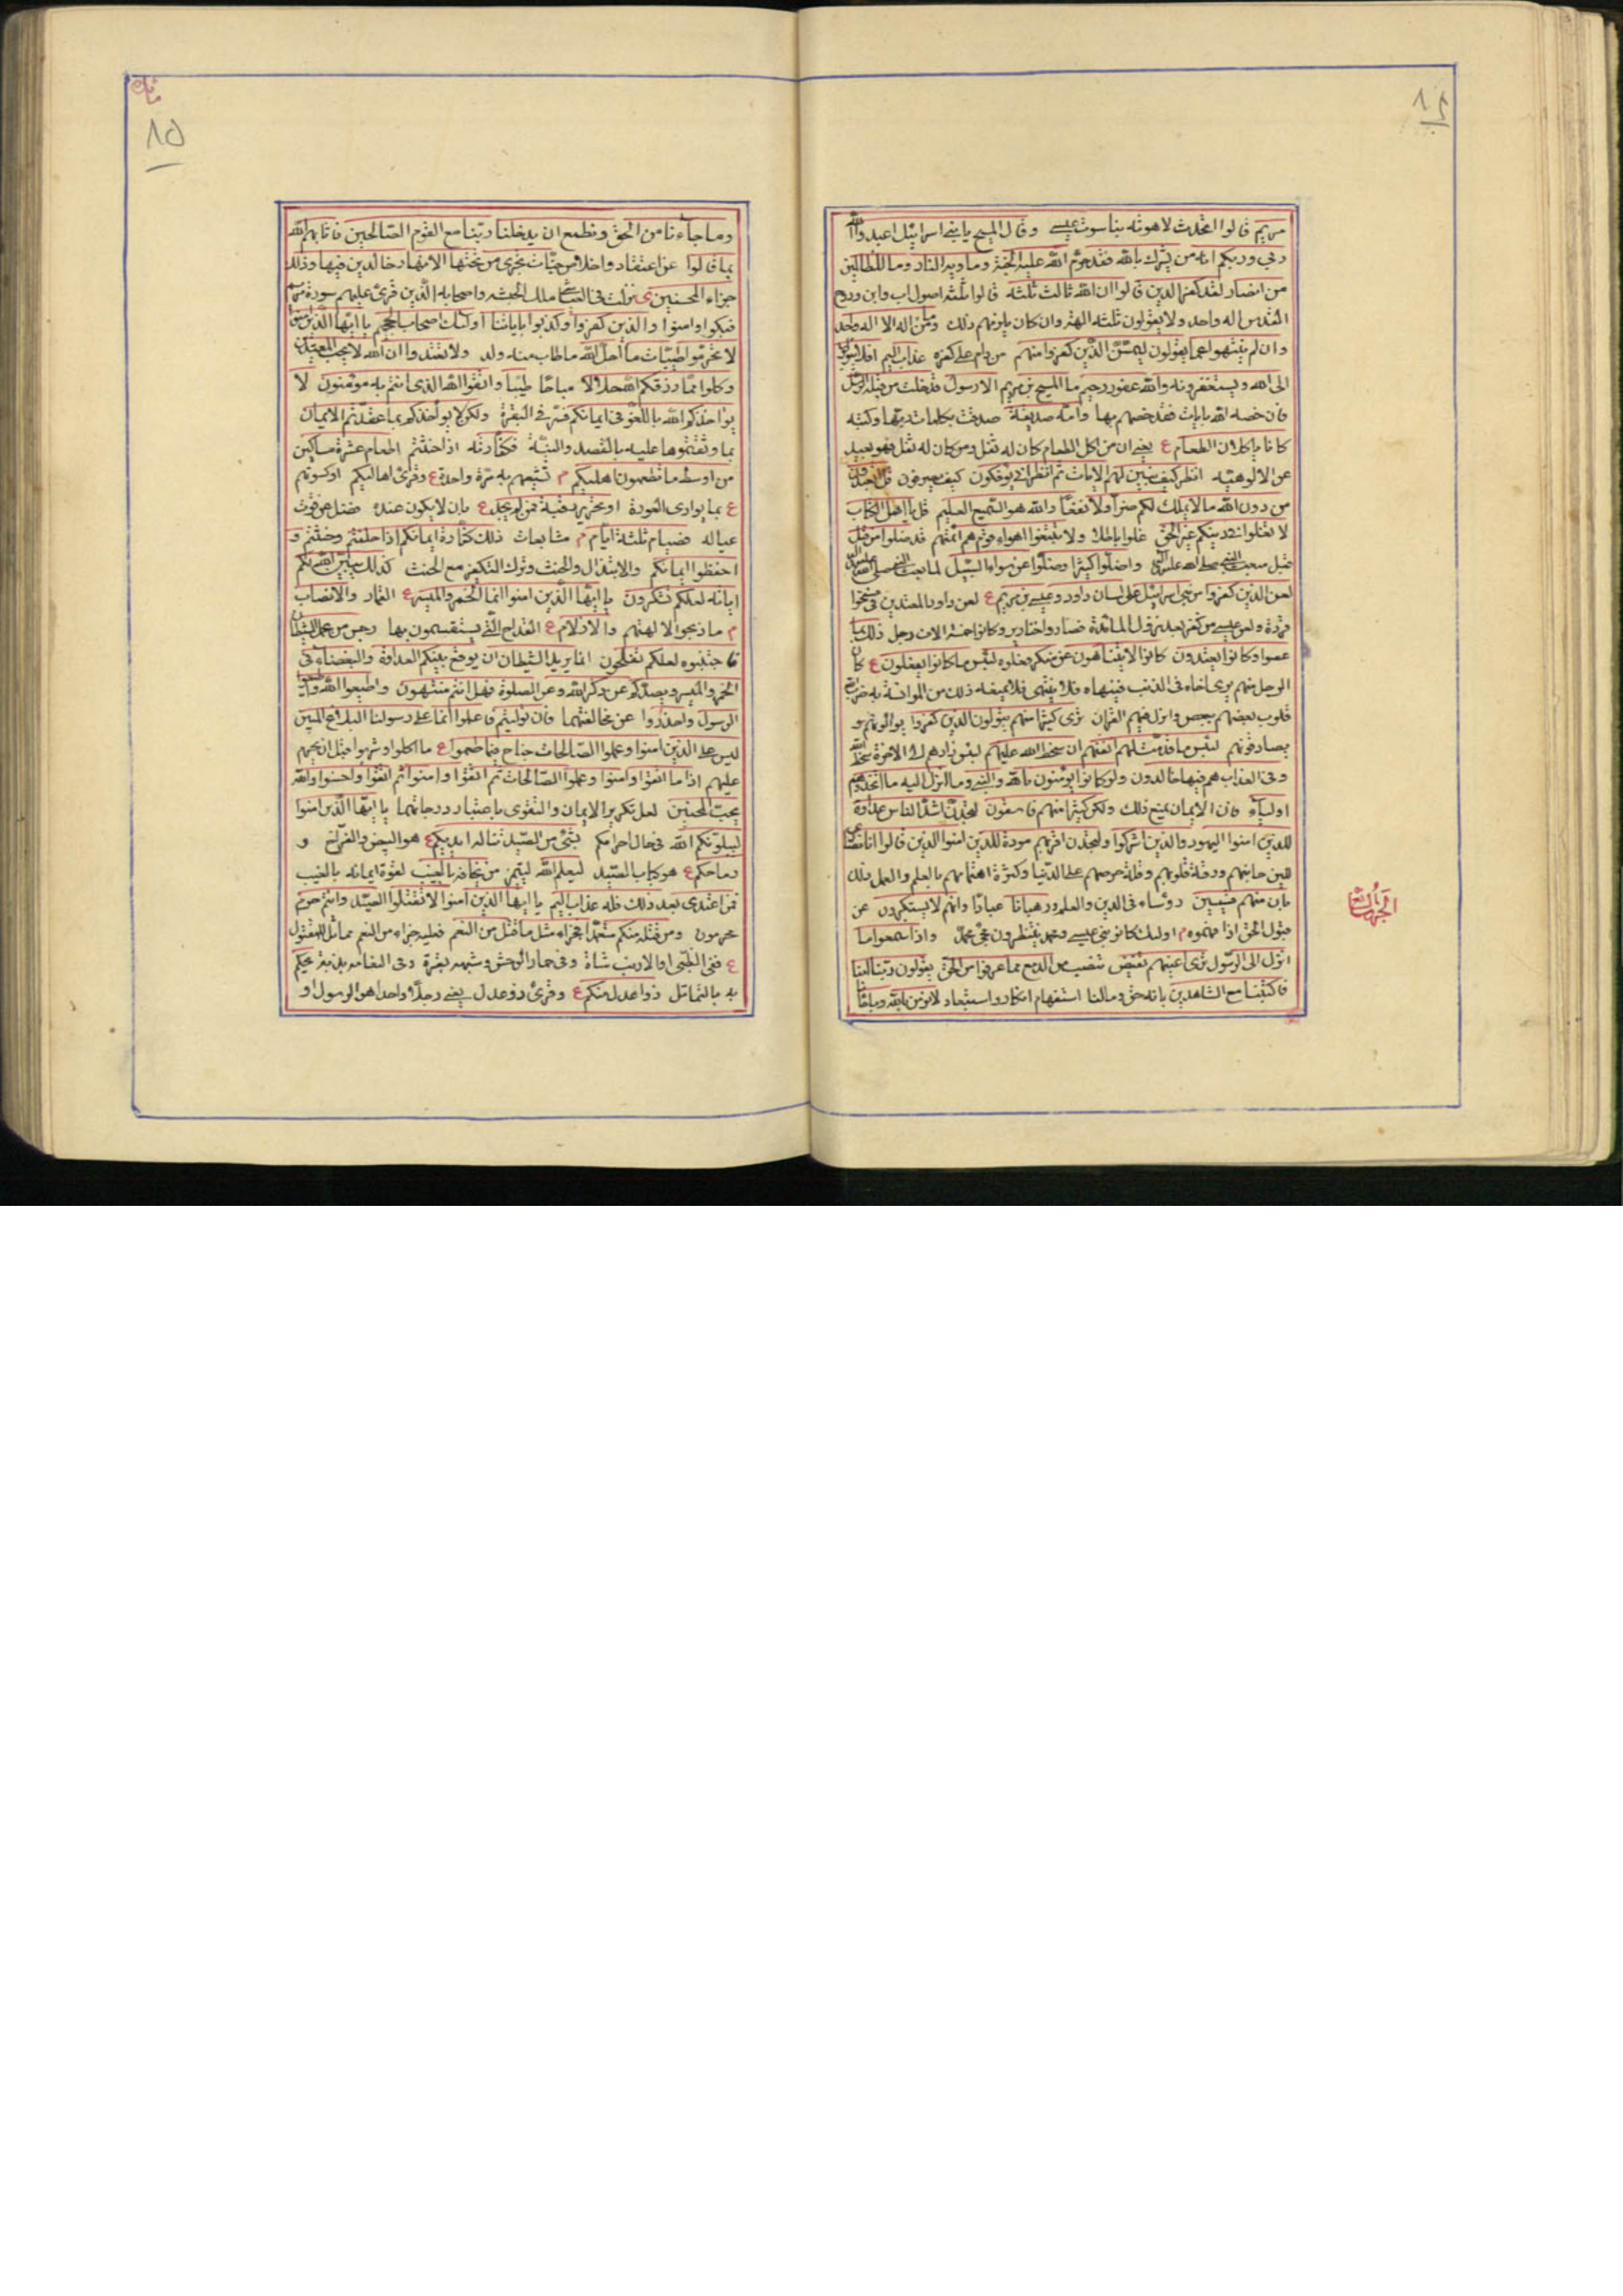 مريم قالوا اتحدت لاهوته بناسوت عيسى وقال المسيح يا بنى اسرائيل اعبدوا الله
ربى وربكم انه من يشرك بالله فقد حرم الله عليه الجنة وماويه النار وما للظالمين
من انصار لقد كفر الذين قالوا ان الله ثالث ثلثة قالوا ثلثة اصول اب وابن وروح
القدس اله واحد ولا يقولون ثلثة الهة وان كان يلزمهم ذلك وما من اله الا اله واحد
وان لم ينتهوا عما يقولون ليمسن الذين كفروا منهم من دام على كفره عذاب اليم افلا يتوبون
الى الله ويستغفرونه والله غفور رحيم ما المسيح بن مريم الا رسول قد خلت من قبله الرسل
فان خصه الله بايات فقد خصهم بها وامه صديقة صدقت بكلمات ربها وكتبه
كانا ياكلان الطعام ع يعنى ان من اكل الطعام كان له ثفل ومن كان له ثفل فهو بعيد
عن الالوهية انظر كيف نبين لهم الايات ثم انظر انى يؤفكون كيف يصرفون قل اتعبدون
من دون الله ما لا يملك لكم ضرا ولا نفعا والله هو السميع العليم قل يا اهل الكتاب
لا تغلوا فى دينكم غير الحق غلوا باطلا ولا تتبعوا اهواء قوم هم ائمتهم قد ضلوا من قبل
قبل مبعث النبى صلى الله عليه واله واضلوا كثيرا وضلوا عن سواء السبيل لما بعث النبى صلى الله عليه واله
لعن الذين كفروا من بنى اسرائيل على لسان داود وعيسى بن مريم ع لعن داود المعتدين فى مسخوا
قردة ولعن عيسى من كفر بعد نزول المائدة فصاروا خنازير وكانوا خمسة الاف رجل ذلك بما
عصوا وكانوا يعتدون كانوا لا يتناهون عن منكر فعلوه لبئس ما كانوا يفعلون ع كان
الرجل منهم يرى اخاه فى الذنب فينهاه فلا ينتهى فلا يمنعه ذلك من المؤانسة به ضرب الله
قلوب بعضهم ببعض وانزل فيهم القران ترى كثيرا منهم يتولون الذين كفروا يوالونهم و
يصادقونهم لبئس ما قدمت لهم انفسهم ان سخط الله عليهم لبئس زادهم الى الاخرة سخط الله
وفى العذاب هم فيها خالدون ولو كانوا يؤمنون بالله والنبى وما انزل اليه ما اتخذوهم
اولياء فان الايمان يمنع ذلك ولكن كثيرا منهم فاسقون لتجدن اشد الناس عداوة
للذين امنوا اليهود والذين اشركوا ولتجدن اقربهم مودة للذين امنوا الذين قالوا انا نصارى
للين جانبهم ورقة قلوبهم وقلة حرصهم على الدنيا وكثرة اهتمامهم بالعلم والعمل ذلك
بان منهم قسيسين رؤساء فى الدين والعلم ورهبانا عبادا وانهم لا يستكبرون عن
قبول الحق اذا فهموه م اولئك كانوا بين عيسى ومحمد ينتظرون مجئ محمد واذا سمعوا ما
انزل الى الرسول ترى اعينهم تفيض تنصب من الدمع مما عرفوا من الحق يقولون ربنا امنا
فاكتبنا مع الشاهدين بانه حق وما لنا استفهام انكار واستبعاد لا نؤمن بالله
الجزء السابع
وما جاءنا من الحق ونطمع ان يدخلنا ربنا مع القوم الصالحين فاثابهم الله
بما قالوا عن اعتقاد واخلاص جنات تجرى من تحتها الانهار خالدين فيها وذلك
جزاء المحسنين ى نزلت فى النجاشى ملك الحبشة واصحابه الذين قرئ عليهم سورة مريم
فبكوا وامنوا والذين كفروا وكذبوا باياتنا اولئك اصحاب الجحيم يا ايها الذين امنوا
لا تحرموا طيبات ما احل الله ما طاب منه ولذ ولا تعتدوا ان الله لا يحب المعتدين
وكلوا مما رزقكم الله حلالا مباحا طيبا واتقوا الله الذى انتم به مؤمنون لا
يؤاخذكم الله باللغو فى ايمانكم فسر فى البقرة ولكن يؤاخذكم بما عقدتم الايمان
بما وثقتموها عليه بالقصد والنية فكفارته اذا حنثتم اطعام عشرة مساكين
من اوسط ما تطعمون اهليكم م تشبعهم به مرة واحدة ع وقرئ اهاليكم او كسوتهم
ع بما يوارى العورة او تحرير رقبة فمن لم يجد ع بان لا يكون عنده فضل عن قوت
عياله فصيام ثلثة ايام م متتابعات ذلك كفارة ايمانكم اذا حلفتم وحنثتم و
احفظوا ايمانكم والابتذال والحنث وترك التكفير مع الحنث كذلك يبين الله لكم
اياته لعلكم تشكرون يا ايها الذين امنوا انما الخمر والميسر ع القمار والانصاب
م ما ذبحوا لالهتهم والازلام ع القداح التى يستقسمون بها رجس من عمل الشيطان
فاجتنبوه لعلكم تفلحون انما يريد الشيطان ان يوقع بينكم العداوة والبغضاء فى
الخمر والميسر ويصدكم عن ذكر الله وعن الصلوة فهل انتم منتهون واطيعوا الله واطيعوا
الرسول واحذروا عن مخالفتهما فان توليتم فاعلموا انما على رسولنا البلاغ المبين
ليس على الذين امنوا وعملوا الصالحات جناح فيما طعموا ع ما اكلوا وشربوا قبل ان يحرم
عليهم اذا ما اتقوا وامنوا وعملوا الصالحات ثم اتقوا وامنوا ثم اتقوا واحسنوا والله
يحب المحسنين لعل تكرير الايمان والتقوى باعتبار درجاتهما يا ايها الذين امنوا
ليبلونكم الله فى حال احرامكم بشئ من الصيد تناله ايديكم ع هو البيض والفراخ و
رماحكم ع هو كبار الصيد ليعلم الله ليتميز من يخافه بالغيب لقوة ايمانه بالغيب
فمن اعتدى بعد ذلك فله عذاب اليم يا ايها الذين امنوا لا تقتلوا الصيد وانتم حرم
محرمون ومن قتله منكم متعمدا فجزاء مثل ما قتل من النعم فعليه جزاء من النعم مماثل للمقتول
ع ففى الظبى والارنب شاة وفى حمار الوحش وشبهه بقرة وفى النعامة بدنة يحكم
به بالتماثل ذوا عدل منكم ع وقرئ ذو عدل يعنى رجلا واحدا هو الرسول او
٨٥